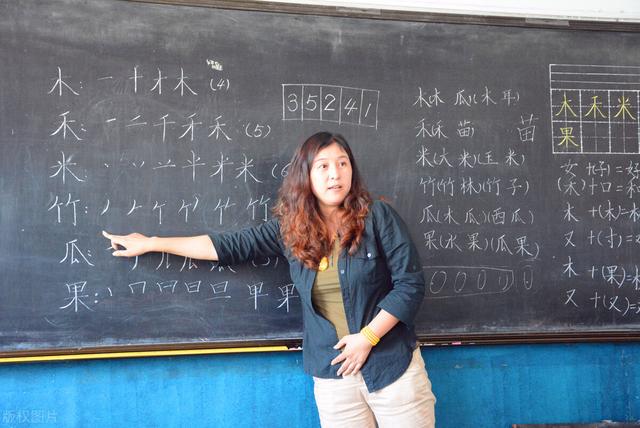 木: 一 十 才 木 (4)
禾: 一 二 千 禾 禾 (5)
米: 丶 丷 䒑 半 米 米 (6
竹: 丿 𠂉 竹
瓜:
果: 丨 冂 日 旦 甲 果
3 5 2 4 1
木林 瓜 (木 耳)
禾(禾 苗) 苗
米(大 米)(玉 米)
竹(竹 林)(竹 子)
瓜(木 瓜)(西 瓜)
果(水 果)(瓜 果)
0 0 0 0
木 禾 米
果
女 +(子) = 好
(禾) + 口 = 和
木 +(木)=
又 +(寸)=
木 +(果)
又 +(又)=
版权图片